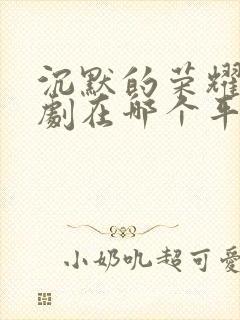 沉默的荣耀
劇在哪个平
小奶吼超可愛